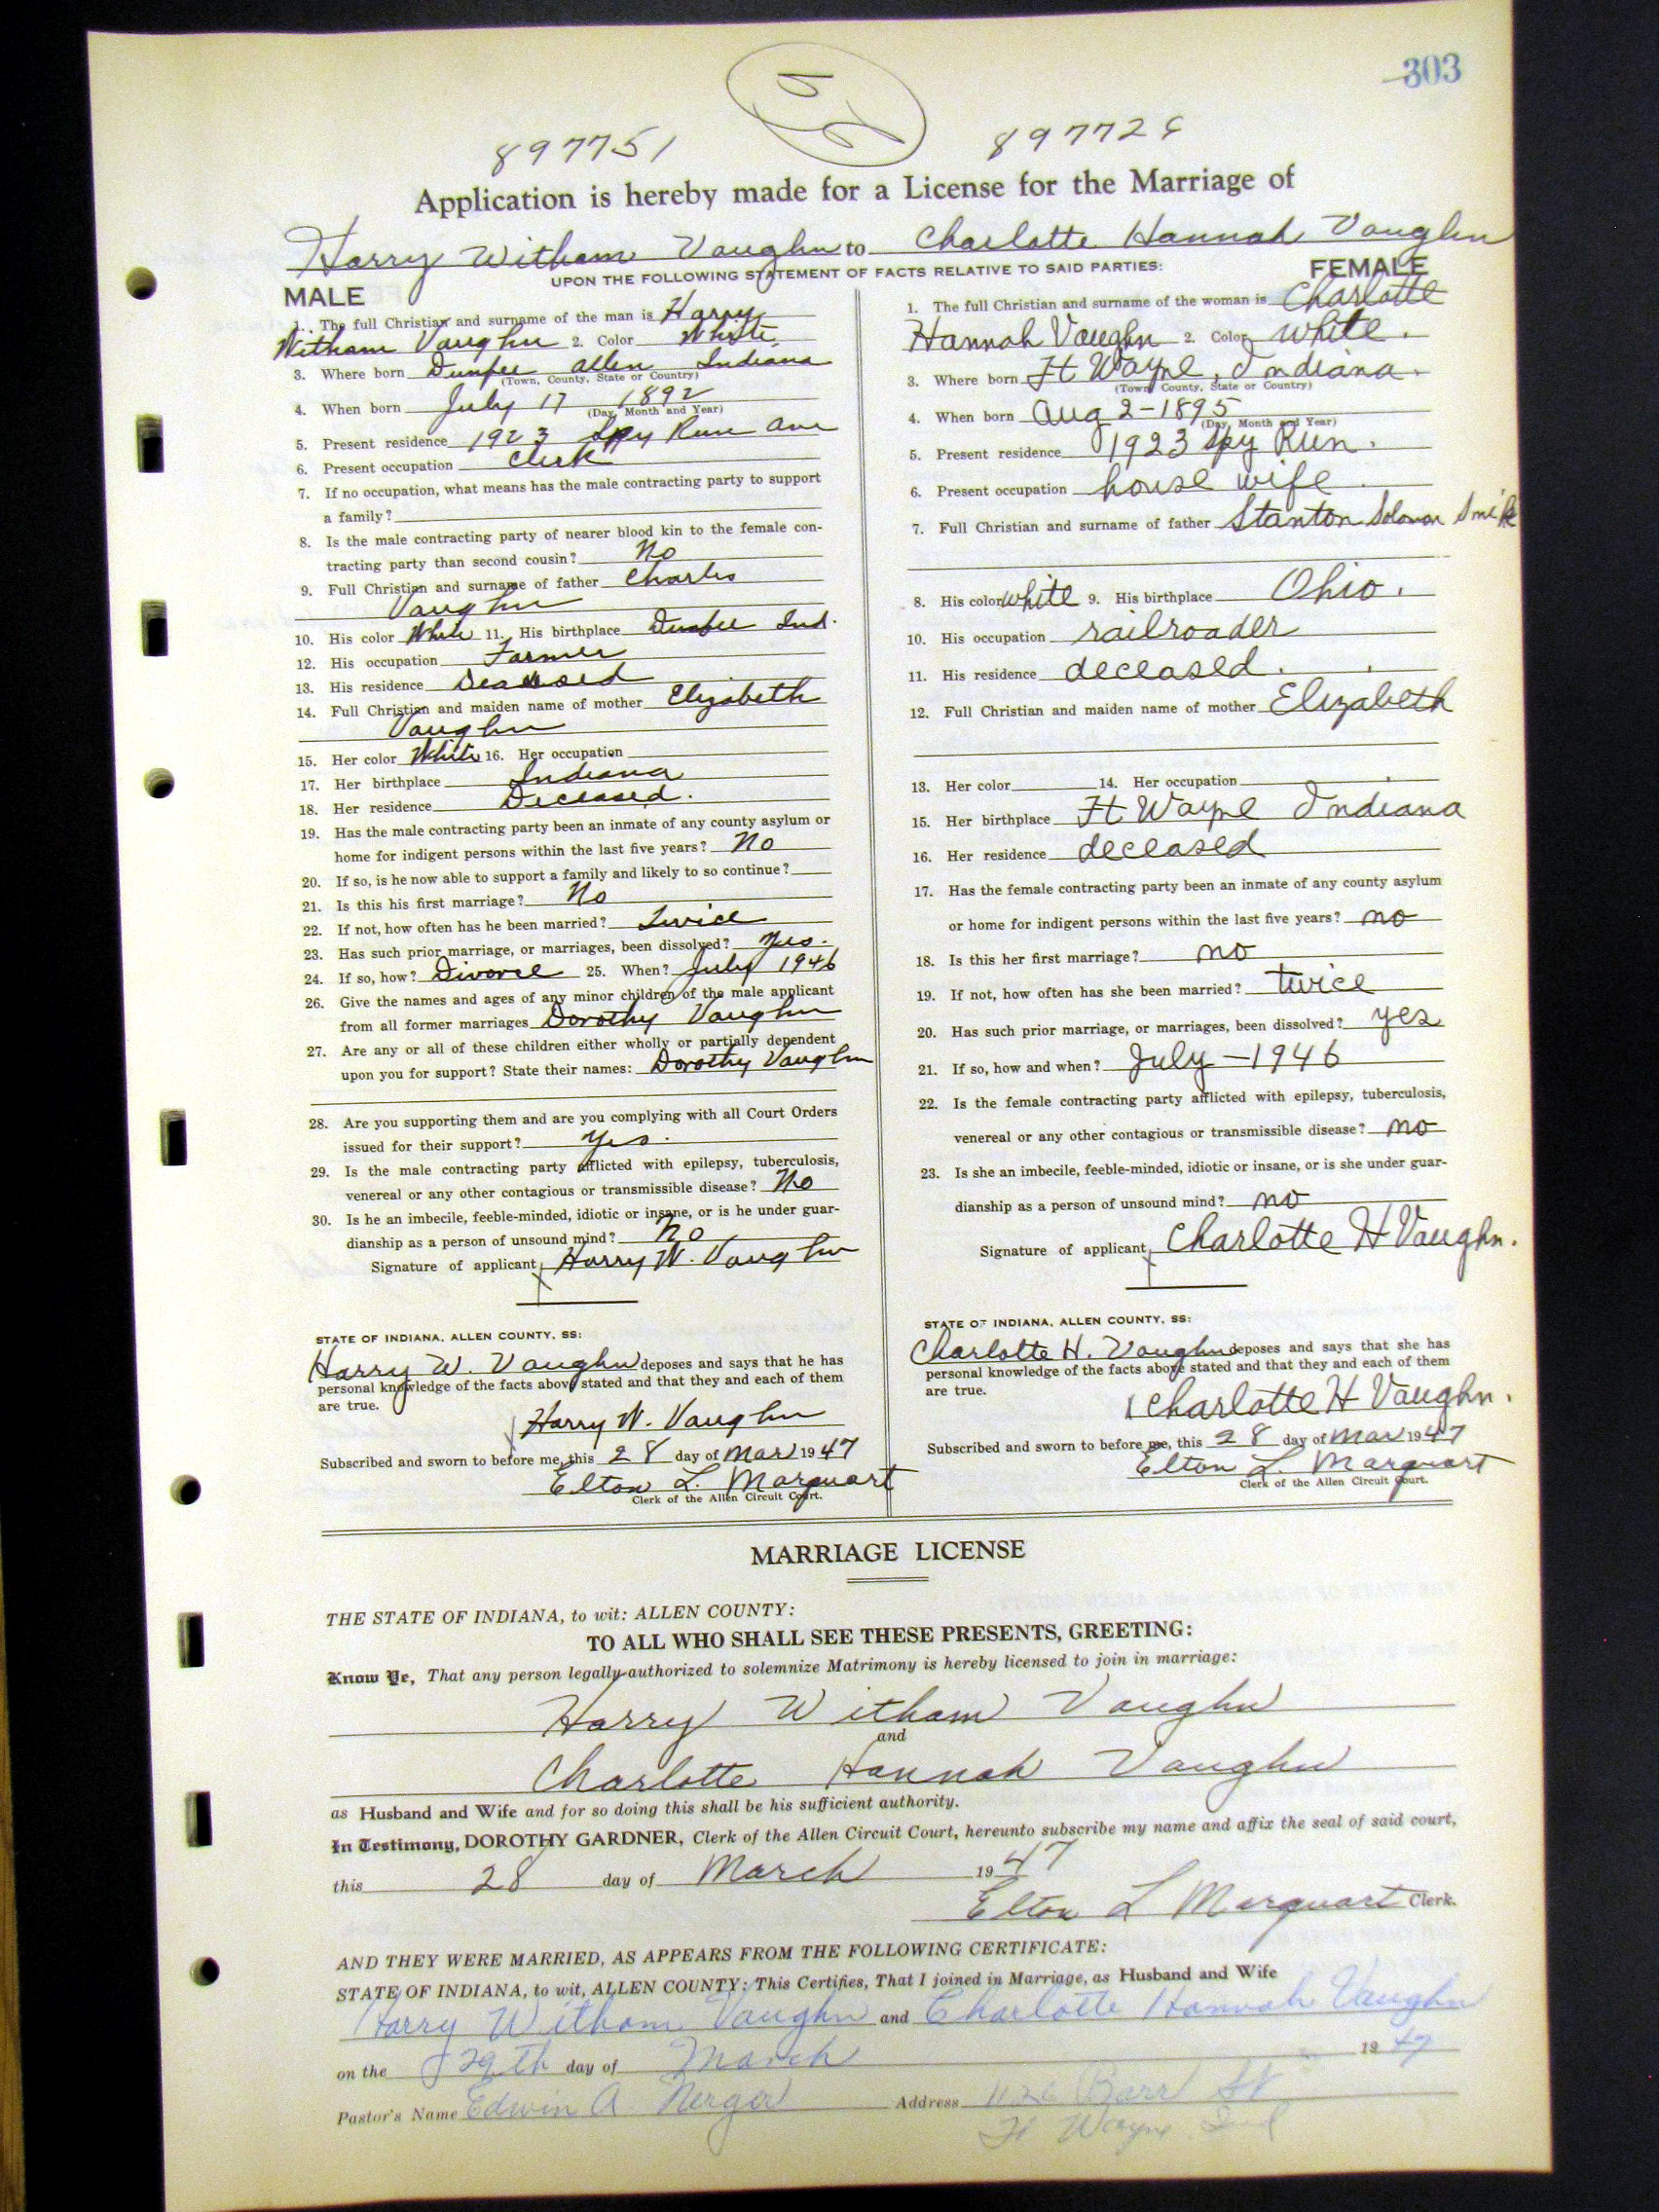 303
897751
Application is hereby made for a License for the Marriage of
Harry Witham Vaughn to Charlotte Hannah Vaughn
UPON THE FOLLOWING STATEMENT OF FACTS RELATIVE TO SAID PARTIES:
MALE
1. The full Christian and surname of the man is Harry
Witham Vaughn 2. Color White
3. Where born Dunfee Allen Indiana
(Town, County, State or Country)
4. When born July 17 1892
(Day, Month and Year)
5. Present residence 1923 Spy Run Ave
6. Present occupation Clerk
7. If no occupation, what means has the male contracting party to support
a family?
8. Is the male contracting party of nearer blood kin to the female con-
tracting party than second cousin? No
9. Full Christian and surname of father Charles
Vaughn
10. His color White 11. His birthplace Dunfee Ind.
12. His occupation Farmer
13. His residence Deceased
14. Full Christian and maiden name of mother Elizabeth
Vaughn
15. Her color White 16. Her occupation
17. Her birthplace Indiana
18. Her residence Deceased.
19. Has the male contracting party been an inmate of any county asylum or
home for indigent persons within the last five years? No
20. If so, is he now able to support a family and likely to so continue?
21. Is this his first marriage? No
22. If not, how often has he been married? Twice
23. Has such prior marriage, or marriages, been dissolved? Yes.
24. If so, how? Divorce 25. When? July 1946
26. Give the names and ages of any minor children of the male applicant
from all former marriages Dorothy Vaughn
27. Are any or all of these children either wholly or partially dependent
upon you for support? State their names: Dorothy Vaughn
28. Are you supporting them and are you complying with all Court Orders
issued for their support? Yes.
29. Is the male contracting party afflicted with epilepsy, tuberculosis,
venereal or any other contagious or transmissible disease? No
30. Is he an imbecile, feeble-minded, idiotic or insane, or is he under guar-
dianship as a person of unsound mind? No
Signature of applicant Harry W. Vaughn
STATE OF INDIANA, ALLEN COUNTY, SS:
Harry W. Vaughn deposes and says that he has
personal knowledge of the facts above stated and that they and each of them
are true.
Harry W. Vaughn
Subscribed and sworn to before me, this 28 day of Mar 1947
Elton L. Marquart
Clerk of the Allen Circuit Court.
FEMALE
1. The full Christian and surname of the woman is Charlotte
Hannah Vaughn 2. Color white.
3. Where born Ft Wayne, Indiana.
(Town, County, State or Country)
4. When born Aug 2-1895
(Day, Month and Year)
5. Present residence 1923 Spy Run.
6. Present occupation house wife
7. Full Christian and surname of father Stanton Solomon
8. His color white 9. His birthplace Ohio.
10. His occupation railroader
11. His residence deceased.
12. Full Christian and maiden name of mother Elizabeth
13. Her color 14. Her occupation
15. Her birthplace Ft Wayne Indiana
16. Her residence deceased
17. Has the female contracting party been an inmate of any county asylum
or home for indigent persons within the last five years? no
18. Is this her first marriage? no
19. If not, how often has she been married? twice
20. Has such prior marriage, or marriages, been dissolved? yes
21. If so, how and when? July-1946
22. Is the female contracting party afflicted with epilepsy, tuberculosis,
venereal or any other contagious or transmissible disease? no
23. Is she an imbecile, feeble-minded, idiotic or insane, or is she under guar-
dianship as a person of unsound mind? no
Signature of applicant Charlotte H Vaughn.
STATE OF INDIANA, ALLEN COUNTY, SS:
Charlotte H. Vaughn deposes and says that she has
personal knowledge of the facts above stated and that they and each of them
are true.
Charlotte H Vaughn.
Subscribed and sworn to before me, this 28 day of Mar 1947
Elton L. Marquart
Clerk of the Allen Circuit Court.
MARRIAGE LICENSE
THE STATE OF INDIANA, to wit: ALLEN COUNTY:
TO ALL WHO SHALL SEE THESE PRESENTS, GREETING:
Know Ye, That any person legally authorized to solemnize Matrimony is hereby licensed to join in marriage:
Harry Witham Vaughn
and
Charlotte Hannah Vaughn
as Husband and Wife and for so doing this shall be his sufficient authority.
In Testimony, DOROTHY GARDNER, Clerk of the Allen Circuit Court, hereunto subscribe my name and affix the seal of said court,
this 28 day of March 1947
Elton L Marquart Clerk.
AND THEY WERE MARRIED, AS APPEARS FROM THE FOLLOWING CERTIFICATE:
STATE OF INDIANA, to wit, ALLEN COUNTY: This Certifies, That I joined in Marriage, as Husband and Wife
Harry Witham Vaughn and Charlotte Hannah Vaughn
on the 29th day of March 1947
Pastor's Name Edwin A. Nerger Address 1126 Barr St
Ft Wayne Ind